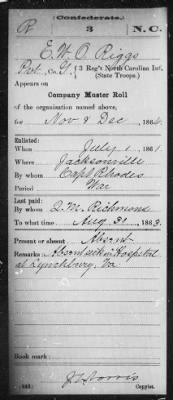 (Confederate.)
R 3 N.C.
E. W. O. Riggs
Pvt. Co. G, 3 Reg't North Carolina Inf.
(State Troops.)
Appears on
Company Muster Roll
of the organization named above,
for Nov & Dec, 1864.
Enlisted:
When July 1, 1861
Where Jacksonville
By whom Capt Rhodes
Period War
Last paid:
By whom Q.M. Richmond
To what time Aug 31, 1863.
Present or absent Absent
Remarks: Absent sick in Hospital
at Lynchburg, Va
Book mark:
Copyist.